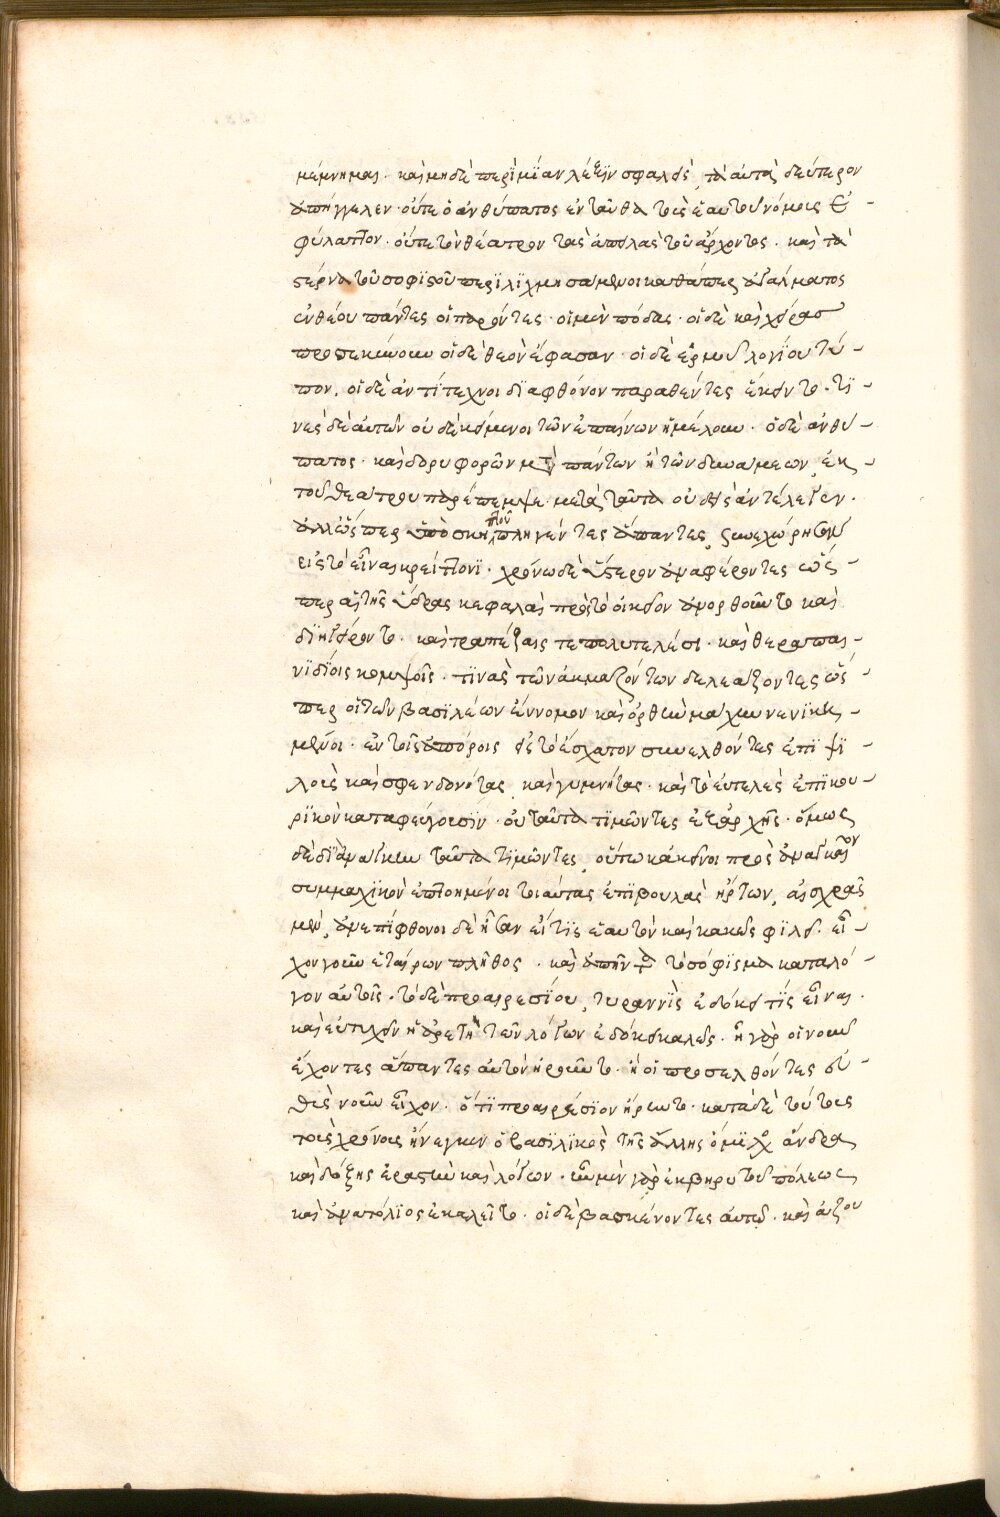 μέμνημαι. καὶ μηδὲ περὶ μίαν λέξιν σφαλεὶς, τὰ αὐτὰ δεύτερον
ἀπήγγελεν. οὔτε ὁ ἀνθύπατος ἐνταῦθα τοῖς ἑαυτοῦ νόμοις ἐ-
φύλαττον. οὔτε τὸ θέατρον τὰς ἀπειλὰς τοῦ ἄρχοντος. καὶ τὰ
στέρνα τοῦ σοφιστοῦ περιλιχμησάμενοι καθάπερ ἀγάλματος
ἐνθέου πάντες οἱ παρόντες. οἱ μὲν πόδας. οἱ δὲ καὶ χεῖρας
προσεκύνουν οἱ δὲ θεὸν ἔφασαν. οἱ δὲ ἑρμοῦ λογίου τύ-
πον. οἱ δὲ ἀντίτεχνοι διὰ φθόνον παραθέντες ἔκειντο. τι-
νὲς δὲ αὐτῶν οὐδὲ κείμενοι τῶν ἐπαίνων ἠμέλουν. ὁ δὲ ἀνθύ-
πατος. καὶ δορυφορῶν μετὰ πάντων ἢ τῶν δυνάμεων, ἐκ-
τοῦ θεάτρου παρέπεμψε. μετὰ ταῦτα οὐδεὶς ἀντέλεγεν.
ἀλλ' ὥσπερ ὑπὸ σκηπτοῦ πληγέντες ἅπαντες, συνεχώρησαν
εἰς τὸ εἶναι κρείττονι. χρόνω δὲ ὕστερον ἀναφέροντες ὥσ-
περ αἱ τῆς ὕδρας κεφαλαὶ πρὸς τὸ οἰκεῖον ἀνορθοῦντο καὶ
διηγείροντο. καὶ τραπέζαις τε πολυτελέσι. καὶ θεραπαι-
νιδίοις κομψοῖς. τινὰς τῶν ἀκμαζόντων δελεάζοντες ὥσ-
περ οἱ τῶν βασιλέων ἔννομον καὶ ὀρθὴν μάχην νενικη-
μένοι. ἐν τοῖς ἀπόροις εἰς τὸ ἔσχατον συνελθόντες ἐπὶ ψι-
λοὺς καὶ σφενδονήτας, καὶ γυμνήτας. καὶ τὸ εὐτελὲς ἐπικου-
ρικὸν καταφεύγουσιν. οὐ ταῦτα τιμῶντες ἐξ ἀρχῆς. ὅμως
δὲ δι' ἀνάγκην ταῦτα τιμῶντες, οὕτω κἀκεῖνοι πρὸς ἀναγκαῖον
συμμαχικὸν ἐπτοημένοι τοιαύτας ἐπιβουλὰς ἤρτων, αἰσχρὰς
μὲν, ἀνεπίφθονοι δὲ ἦσαν εἴ τις ἑαυτὸν καὶ κακῶς φιλεῖ. εἶ-
χον γοῦν ἑταίρων πλῆθος. καὶ ἀπήντα τὸ σόφισμα κατὰ λό-
γον αὐτοῖς. τὸ δὲ προαιρεσίου, τυραννὶς ἐδόκει τίς εἶναι.
καὶ εὐτυχεῖν ἡ ἀρετὴ τῶν λόγων ἐδόκει καλῶς. ἢ γὰρ οἱ νοῦν
ἔχοντες ἅπαντες αὐτὸν ἡροῦντο. ἢ οἱ προσελθόντες εὐ-
θὺς νοῦν εἶχον. ὅτι προαιρέσιον ἥρηντο. κατὰ δὲ τούτους
τοὺς χρόνους ἤνεγκεν ὁ βασιλικὸς τῆς αὐλῆς ὅμιλος ἄνδρα
καὶ δόξης ἐραστὴν καὶ λόγων. ἦν μὲν γὰρ ἐκ βηρυτοῦ πόλεως
καὶ ἀνατόλιος ἐκαλεῖτο. οἱ δὲ βασκαίνοντες αὐτῷ. καὶ ἀζου